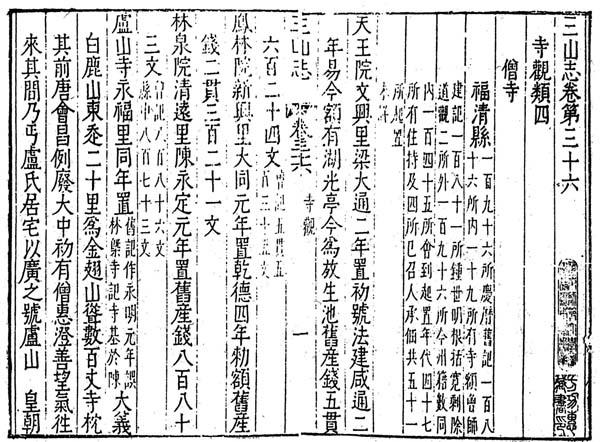 三山志卷第三十六
寺觀類四
僧寺
福清縣
一百九十六所慶曆舊記一百八
十六所内一十九所有寺額曾師
建記一百八十一所鍾世明根括寛剩除
道觀二所外一百九十六所今州籍數同
内一百四十五所會到起置年代四十七
所有住持及四所已召人承佃共五十一
所起置
未詳
天王院文興里梁大通二年置初號法建咸通二
年易今額有湖光亭今爲放生池舊產錢五貫
三山志 卷三十六 寺觀 一
六百二十四文
鳳林院新興里大同元年置乾德四年勑額舊產
錢二貫三百二十一文
林泉院清遠里陳永定元年置舊産錢八百八十
三文
舊記八百八十六文
縣申八百七十三文
盧山寺永福里同年置
舊記作永明元年誤
林縣寺記寺基於陳
大義
白鹿山東委二十里爲金翅山聳數百丈寺枕
其前唐會昌例廢大中初有僧惠澄善望氣往
來其間乃丐盧氏居宅以廣之號盧山 皇朝